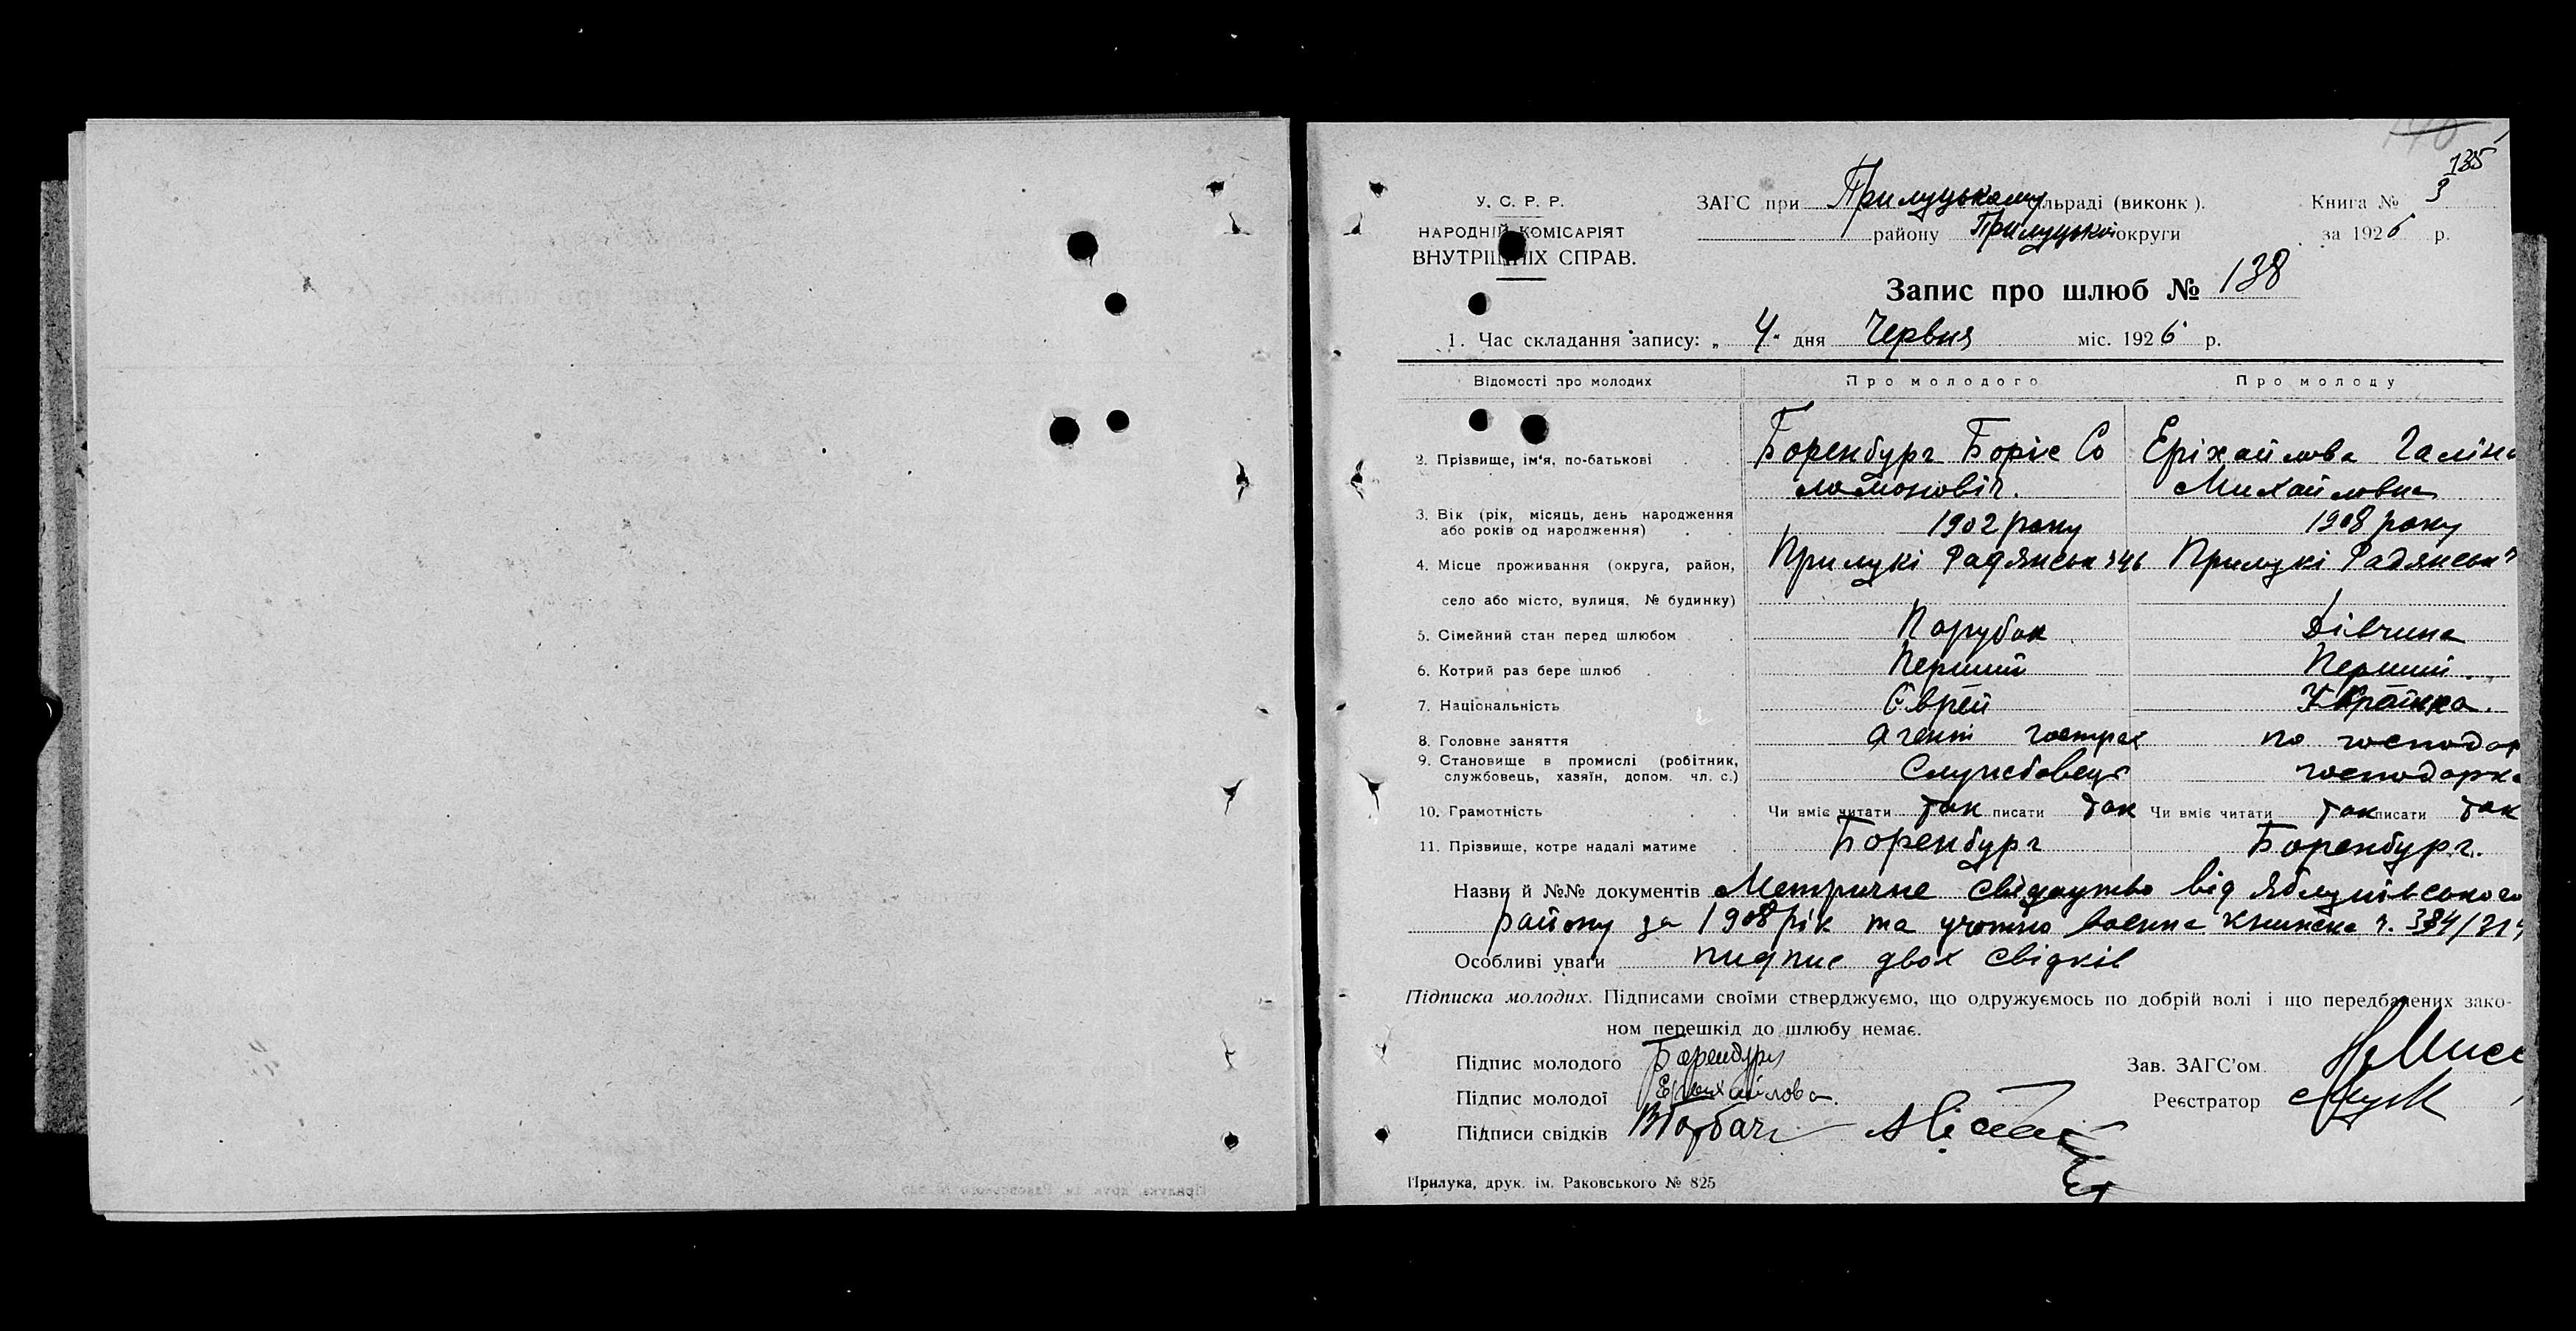 135
У. С. Р. Р.
НАРОДНІЙ КОМІСАРІЯТ
ВНУТРІШНІХ СПРАВ.
ЗАГС при Прилуцькому сільраді (виконк).
району Прилуцької округи
Книга № 3
за 1926 р.
Запис про шлюб № 138
1. Час складання запису: „ 4 " дня Червня міс. 1926 р.
Відомості про молодих Про молодого Про молоду
2. Прізвище, ім'я, по-батькові Боренбург Боріс Со Еріхайлова Галіна
ломоновіч. Михайловна
3. Вік (рік, місяць, день народження
або років од народження) 1902 року 1908 року
4. Місце проживання (округа, район, Прилукі Радянськ 346 Прилукі Радянськ
село або місто, вулиця, № будинку)
5. Сімейний стан перед шлюбом Парубок Дівчина
6. Котрий раз бере шлюб Перший Перший
7. Національність Єврей Українка.
8. Головне заняття Агент Госстрах по господар
9. Становище в промислі (робітник,
службовець, хазяїн, допом. чл. с.) Службовець господарка
10. Грамотність Чи вміє читати так писати так Чи вміє читати так писати так
11. Прізвище, котре надалі матиме Боренбург Боренбург.
Назви й №№ документів Метричне свідоцтво від Яблунівського
району за 1908 рік та учотно воєнна книжка ч. 384/
Особливі уваги пидпис двох свідків
Підписка молодих. Підписами своїми стверджуємо, що одружуємось по добрій волі і що передбачених зако-
ном перешкід до шлюбу немає.
Підпис молодого Боренбург
Зав. ЗАГС'ом
Підпис молодої Еріхайлова.
Реєстратор
Підписи свідків
Прилука, друк. ім. Раковського № 825